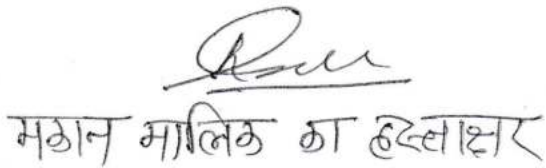 मकान मालिक का हस्ताक्षर